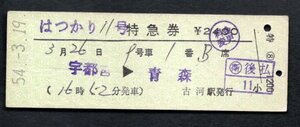 はつかり11号特急券 ¥2400
3月26日 9号車1番B席
宇都宮 ▶ 青森
(16時52分発車) 古河駅発行
54.-3.19
後払
11小